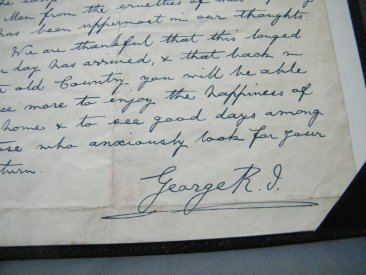 Men from the cruelties of
has been uppermost in our thoughts.
We are thankful that this longed
day has arrived, & that back in
old Country you will be able
more to enjoy the happiness of
home & to see good days among
who anxiously look for your
George R. I.